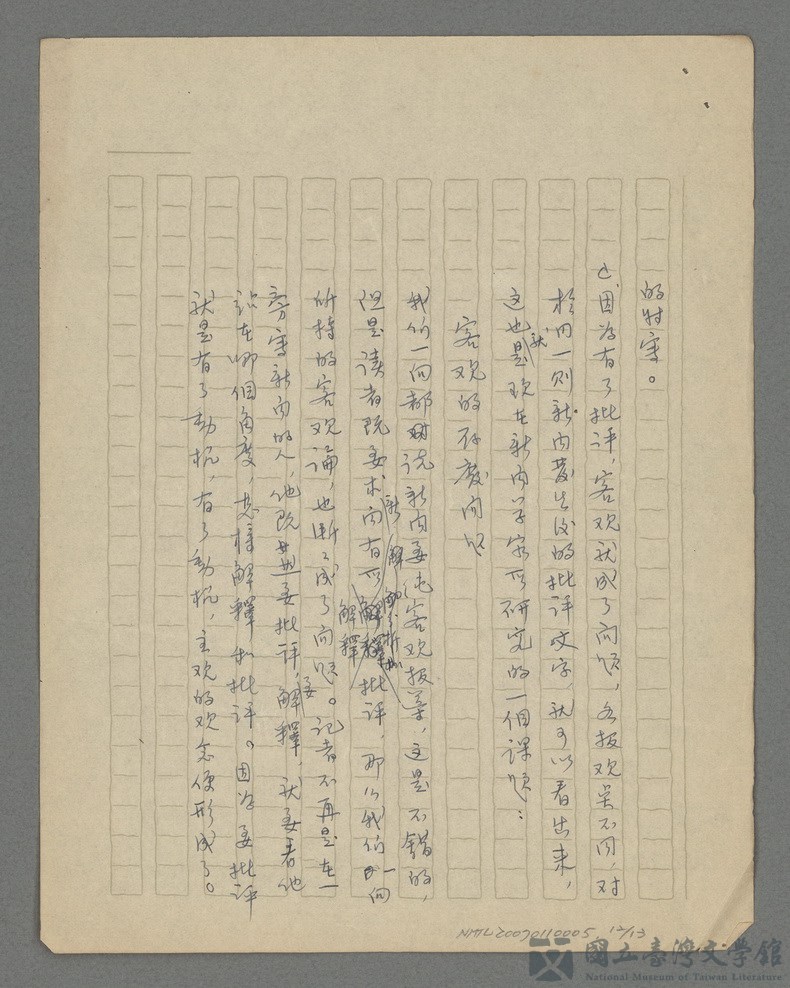 的特寫。
因为有了批评，客观就成了问题，各报观点不同，对
于同一则新闻發生後的批评文字，就可以看出来，
这也就是现在新闻学家所研究的一個課題：
客观的存废问题
我们一向都说新闻要纯客观报导，这是不錯的，
但是读者既要求新闻有所解釋批评，那么我们一向
所持的客观論，也渐渐成了问题。记者不再是在一
旁寫新闻的人，他既要批评，要解釋，就要看他
站在哪個角度，怎樣解釋和批评。因为要批评
就是有了動机，有了動机，主观的观念便形成了。
NMTL20090110005 12/13
國立臺灣文學館
National Museum of Taiwan Literature